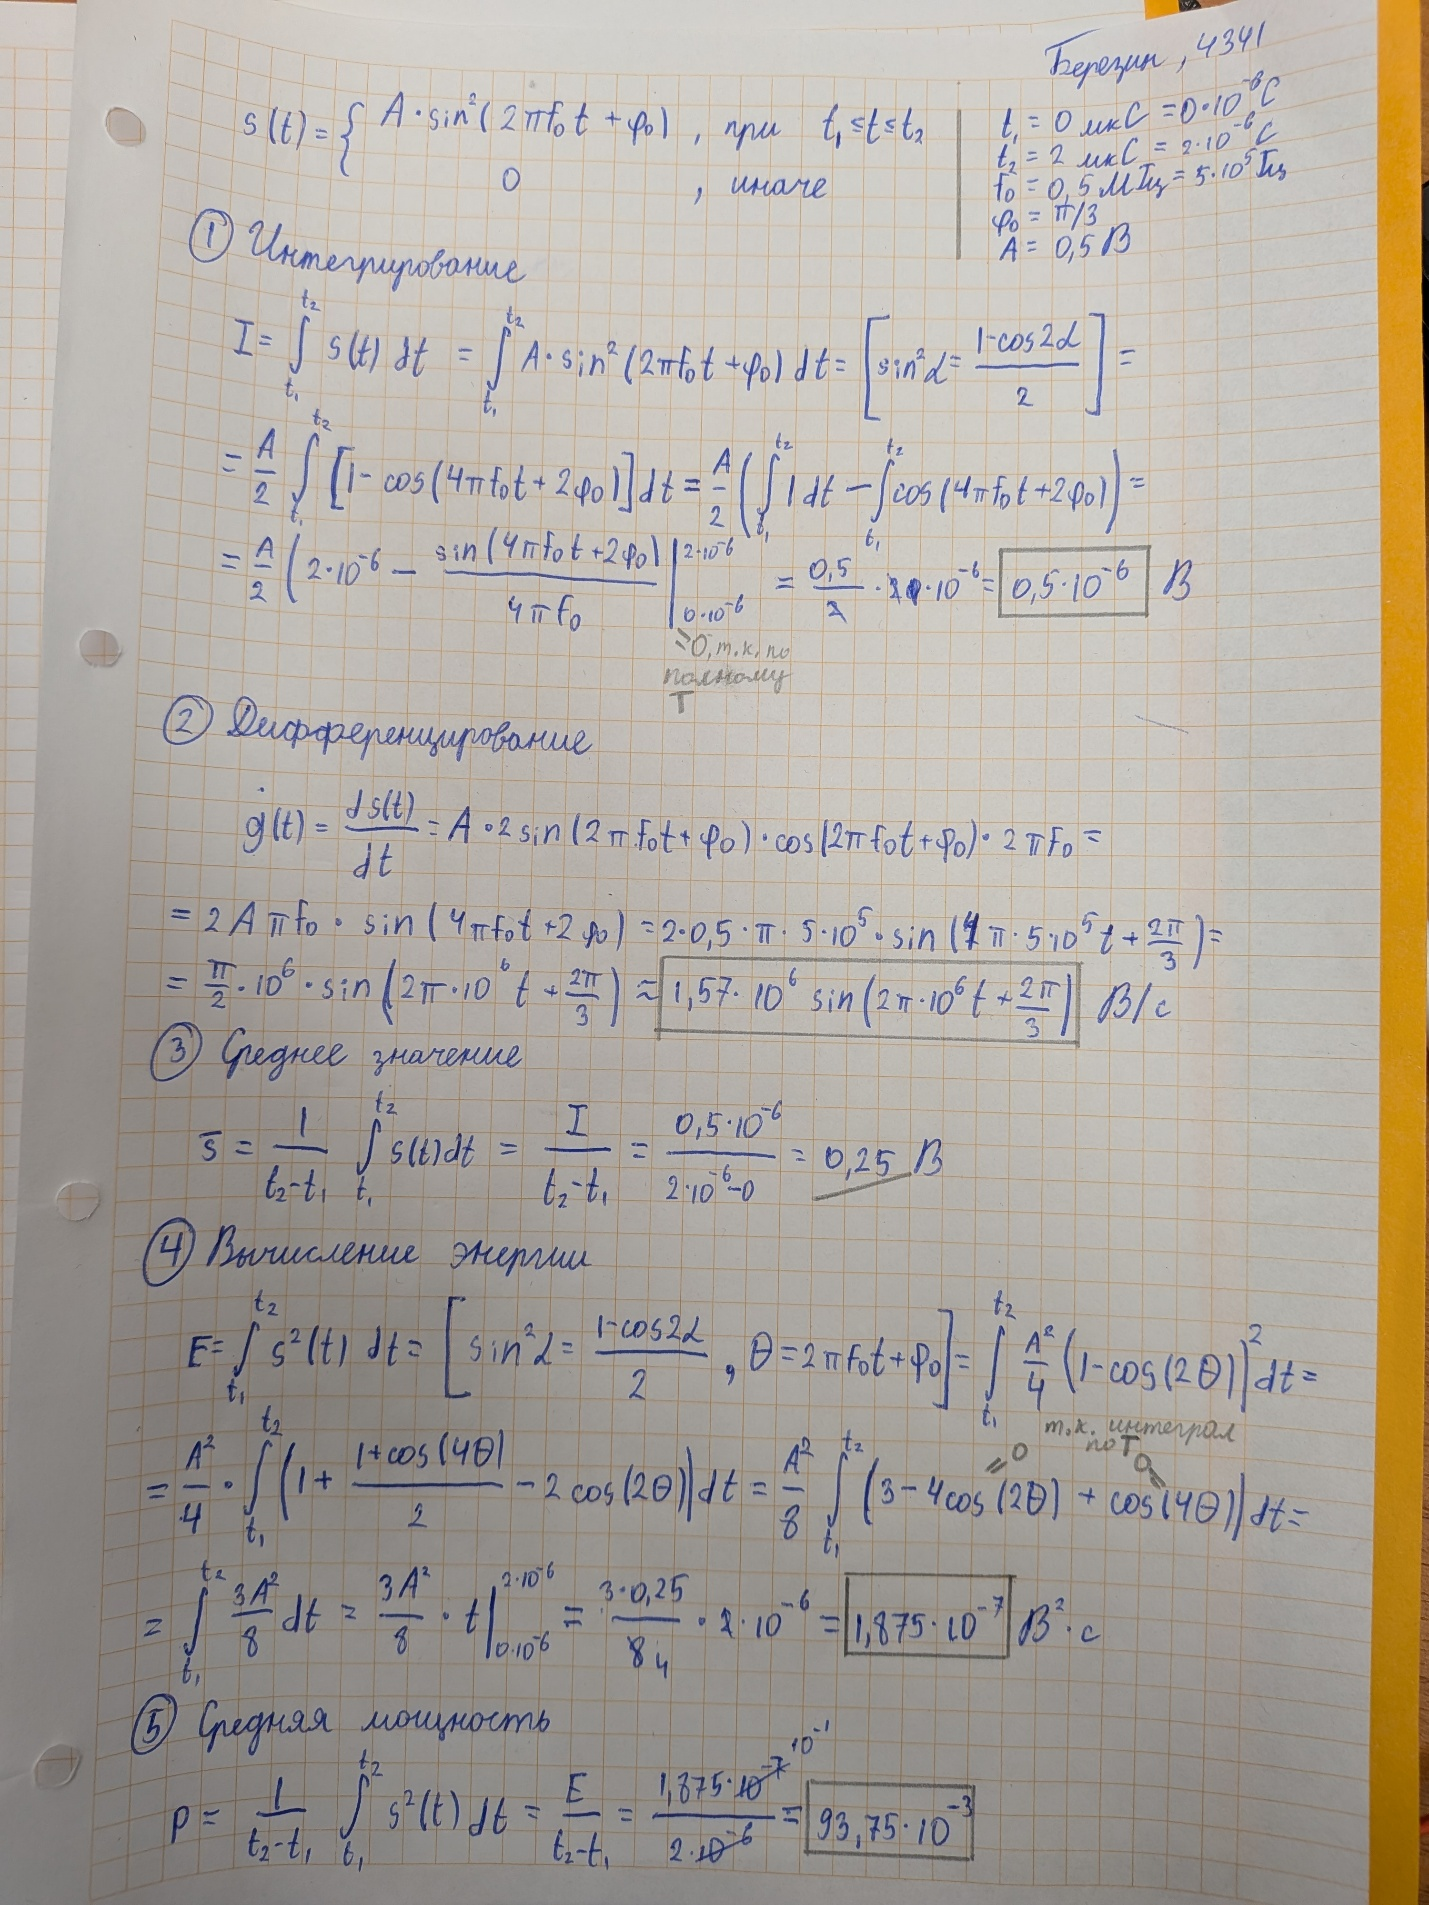 Березин, 4341
s(t) = { A·sin²(2πf₀t + φ₀), при t₁ ≤ t ≤ t₂
0, иначе
t₁ = 0 мкС = 0·10⁻⁶С
t₂ = 2 мкС = 2·10⁻⁶С
f₀ = 0,5 МГц = 5·10⁵Гц
φ₀ = π/3
A = 0,5 В
① Интегрирование
I = ∫_{t₁}^{t₂} s(t) dt = ∫_{t₁}^{t₂} A·sin²(2πf₀t + φ₀) dt = [sin²α = (1-cos2α)/2] =
= A/2 ∫_{t₁}^{t₂} [1 - cos(4πf₀t + 2φ₀)] dt = A/2 (∫_{t₁}^{t₂} 1 dt - ∫_{t₁}^{t₂} cos(4πf₀t + 2φ₀)) =
= A/2 (2·10⁻⁶ - sin(4πf₀t + 2φ₀)/4πf₀ |_{0·10⁻⁶}^{2·10⁻⁶} = 0,5/2 · 2·10⁻⁶ = 0,5·10⁻⁶ В
=0, т.к. по
полному
T
② Дифференцирование
g(t) = ds(t)/dt = A·2sin(2πf₀t + φ₀)·cos(2πf₀t + φ₀)·2πf₀ =
= 2Aπf₀·sin(4πf₀t + 2φ₀) = 2·0,5·π·5·10⁵·sin(4π·5·10⁵t + 2π/3) =
= π/2·10⁶·sin(2π·10⁶t + 2π/3) ≈ 1,57·10⁶ sin(2π·10⁶t + 2π/3) В/с
③ Среднее значение
s̄ = 1/(t₂-t₁) ∫_{t₁}^{t₂} s(t)dt = I/(t₂-t₁) = 0,5·10⁻⁶/(2·10⁻⁶-0) = 0,25 В
④ Вычисление энергии
E = ∫_{t₁}^{t₂} s²(t) dt = [sin²α = (1-cos2α)/2, θ = 2πf₀t + φ₀] = ∫_{t₁}^{t₂} A²/4 (1-cos(2θ))² dt =
т.к. интеграл
по T
=0 0=
= A²/4 · ∫_{t₁}^{t₂} (1 + (1+cos(4θ))/2 - 2cos(2θ)) dt = A²/8 ∫_{t₁}^{t₂} (3 - 4cos(2θ) + cos(4θ)) dt =
= ∫_{t₁}^{t₂} 3A²/8 dt = 3A²/8 · t |_{0·10⁻⁶}^{2·10⁻⁶} = 3·0,25/8 4 · 2·10⁻⁶ = 1,875·10⁻⁷ В²·с
⑤ Средняя мощность
P = 1/(t₂-t₁) ∫_{t₁}^{t₂} s²(t) dt = E/(t₂-t₁) = 1,875·10⁻⁷ 10⁻¹/2·10⁻⁶ = 93,75·10⁻³